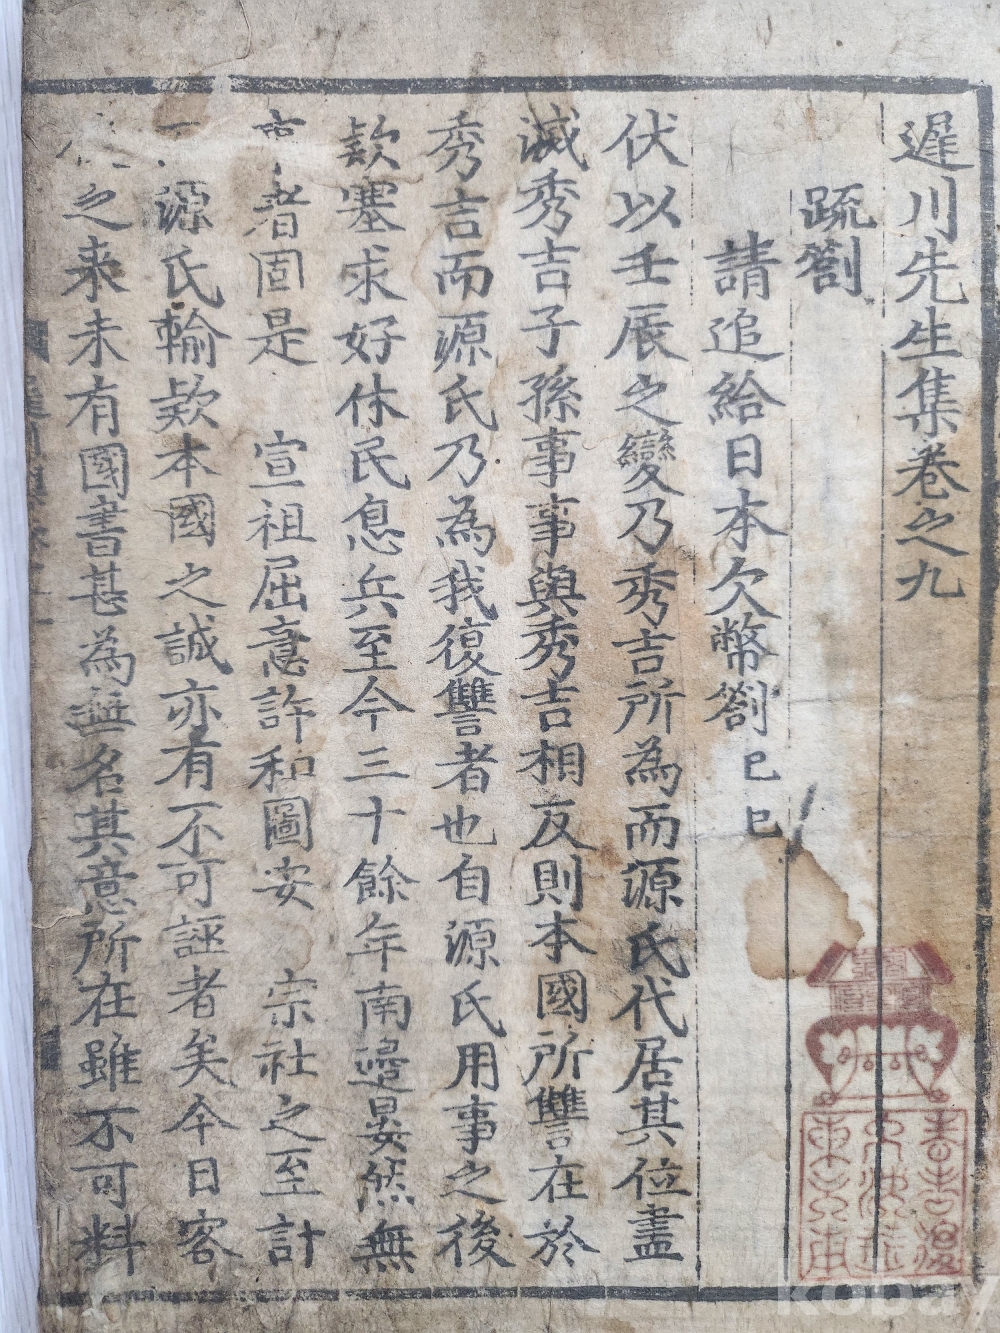 遲川先生集卷之九
疏劄
請追給日本欠幣劄 己巳
伏以壬辰之變乃秀吉所為而源氏代居其位盡
滅秀吉子孫事事與秀吉相反則本國所讐在於
秀吉而源氏乃為我復讐者也自源氏用事之後
欵塞求好休民息兵至今三十餘年南邊晏然無
者固是 宣祖屈意許和圖安 宗社之至計
源氏輸欵本國之誠亦有不可誣者矣今日客
之来未有國書甚為無名其意所在雖不可料
kobay